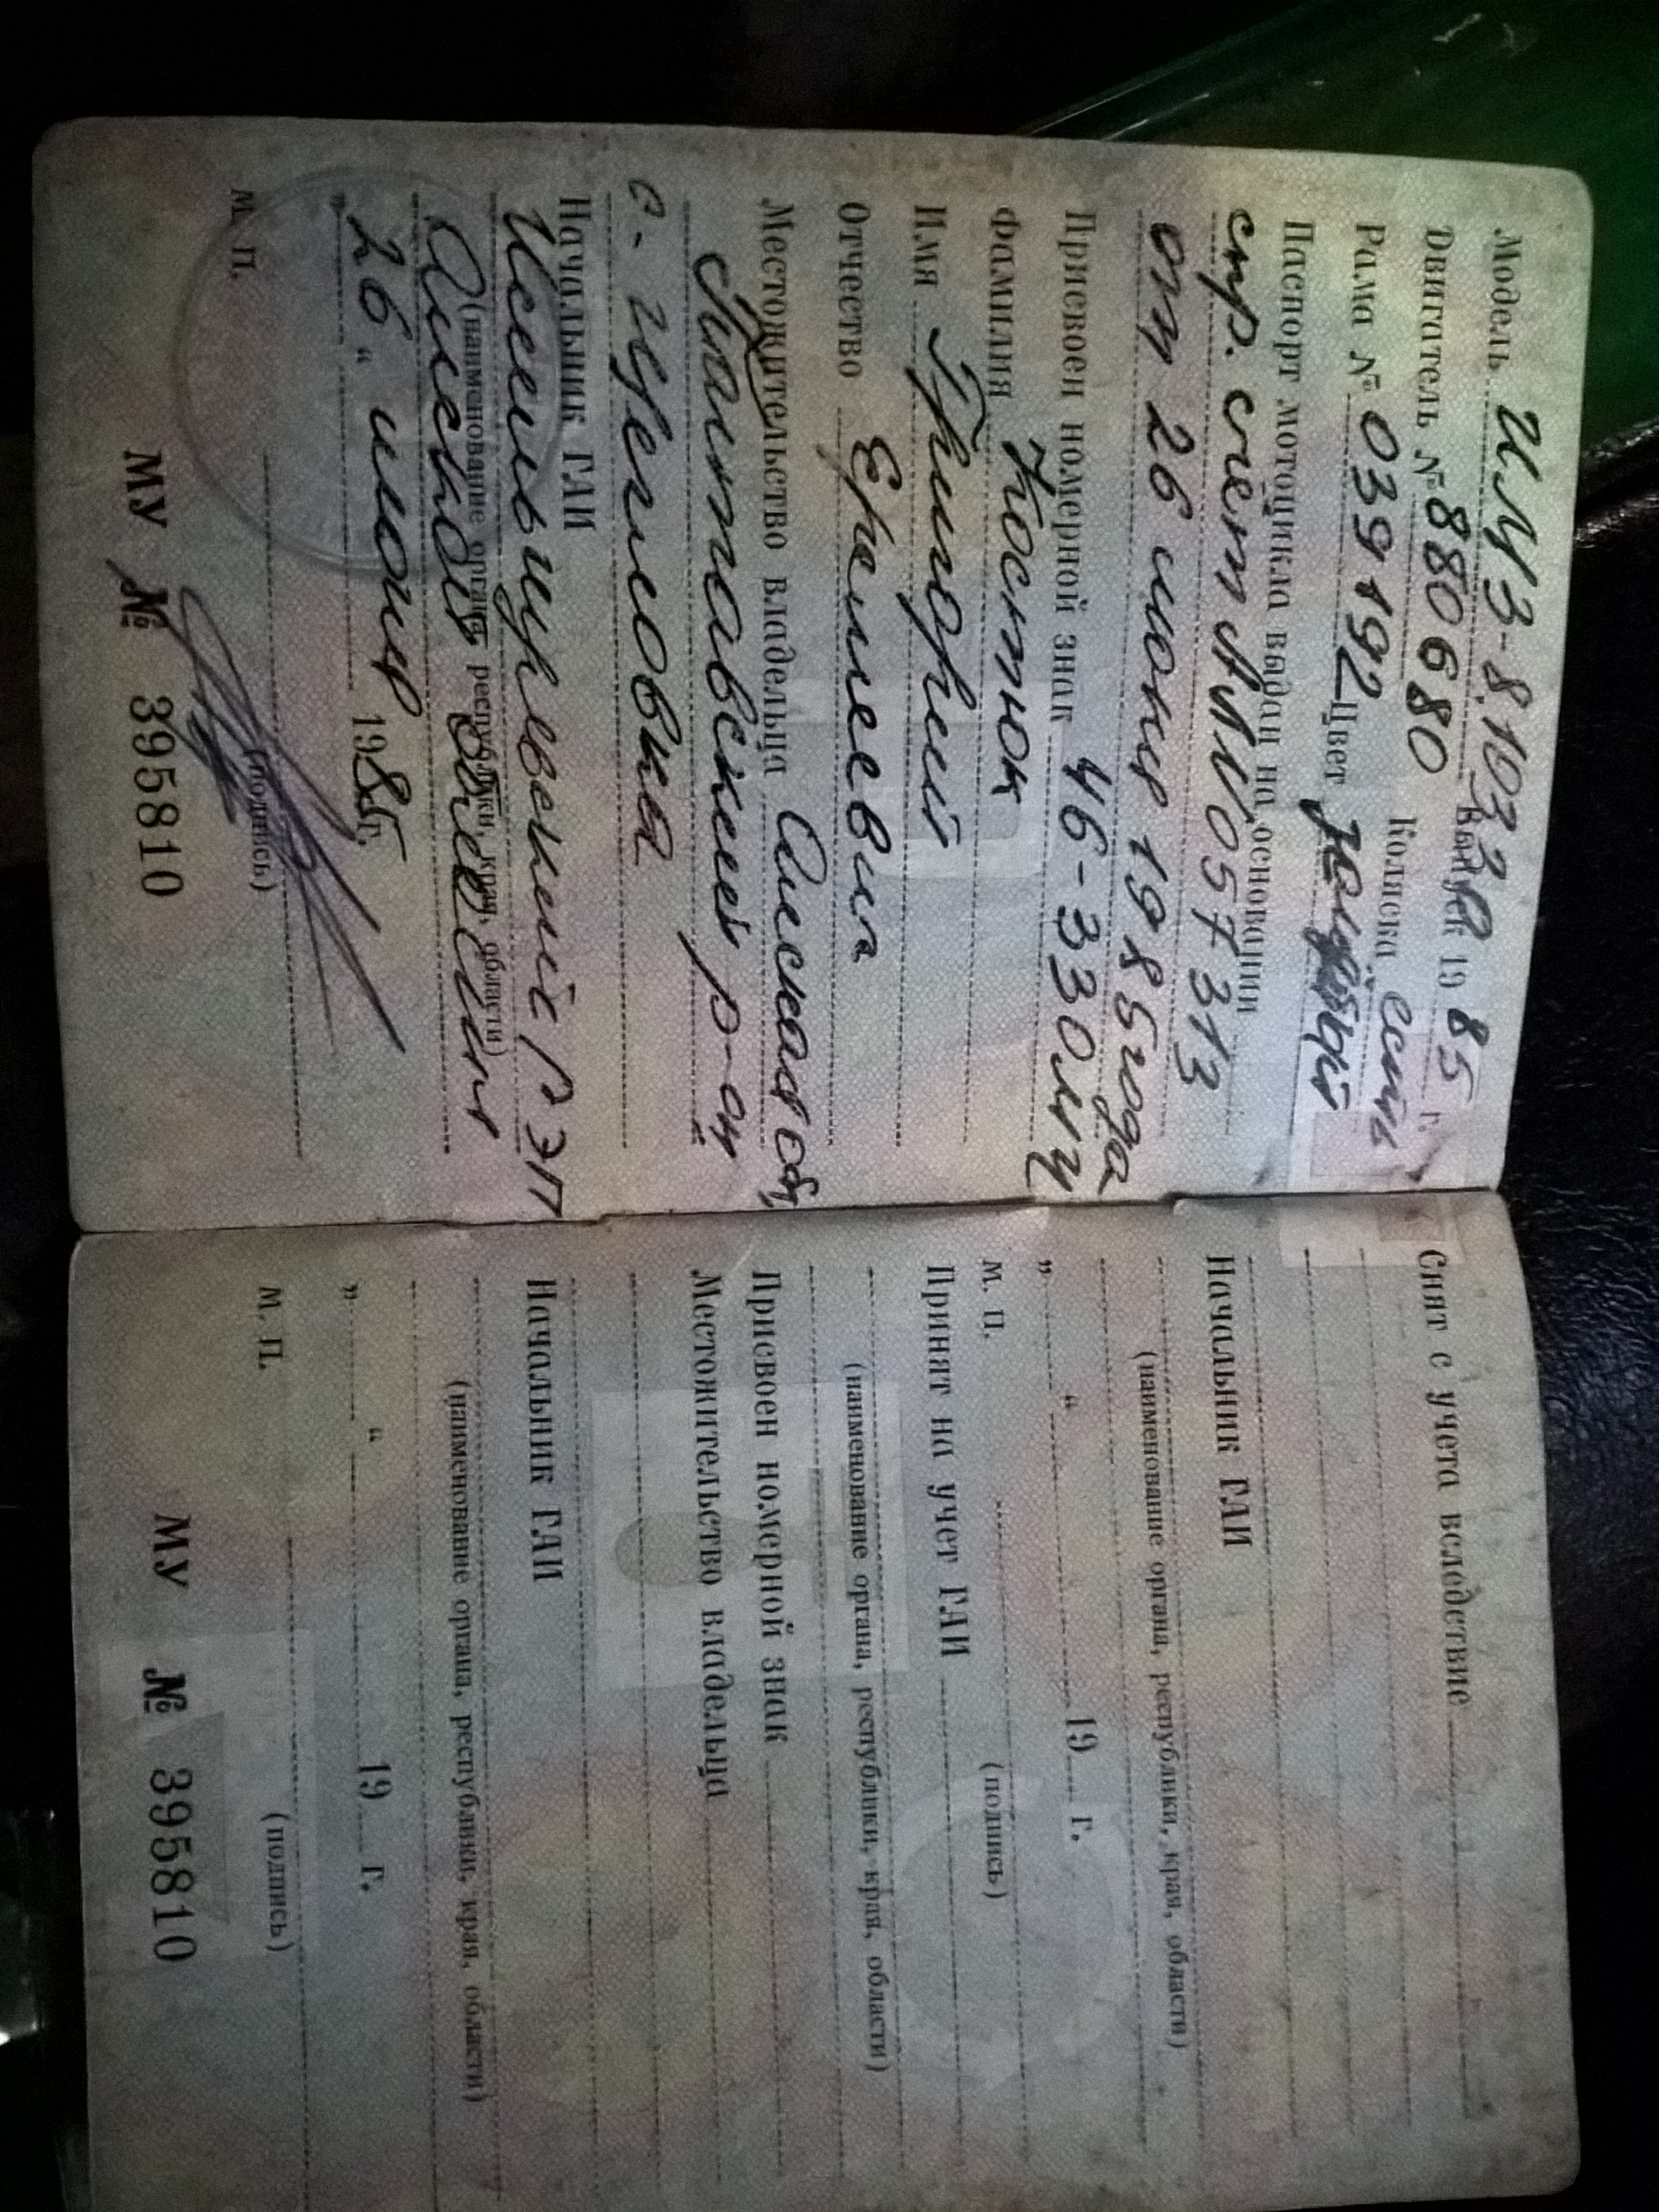 Модель ИМЗ-8.103
Двигатель № 880680 Выпуск 1985 г.
Рама № 039192 Коляска есть
Цвет
Паспорт мотоцикла выдан на основании
спр. счет АМ 057313
от 26 июня 1985 года
Присвоен номерной знак 46-33 ОМЦ
Фамилия Костюк
Имя Григорий
Отчество
Местожительство владельца Омская обл,
Полтавский р-он
с. Щегловка
Начальник ГАИ
Исилькульский РЭП
(наименование органа, республики, края, области)
Омской области
„ 26 “ июня 1985 г.
М. П. (подпись)
МУ № 395810
Снят с учета вследствие
Начальник ГАИ
(наименование органа, республики, края, области)
„ “ 19 г.
М. П. (подпись)
Принят на учет ГАИ
(наименование органа, республики, края, области)
Присвоен номерной знак
Местожительство владельца
Начальник ГАИ
(наименование органа, республики, края, области)
„ “ 19 г.
М. П. (подпись)
МУ № 395810